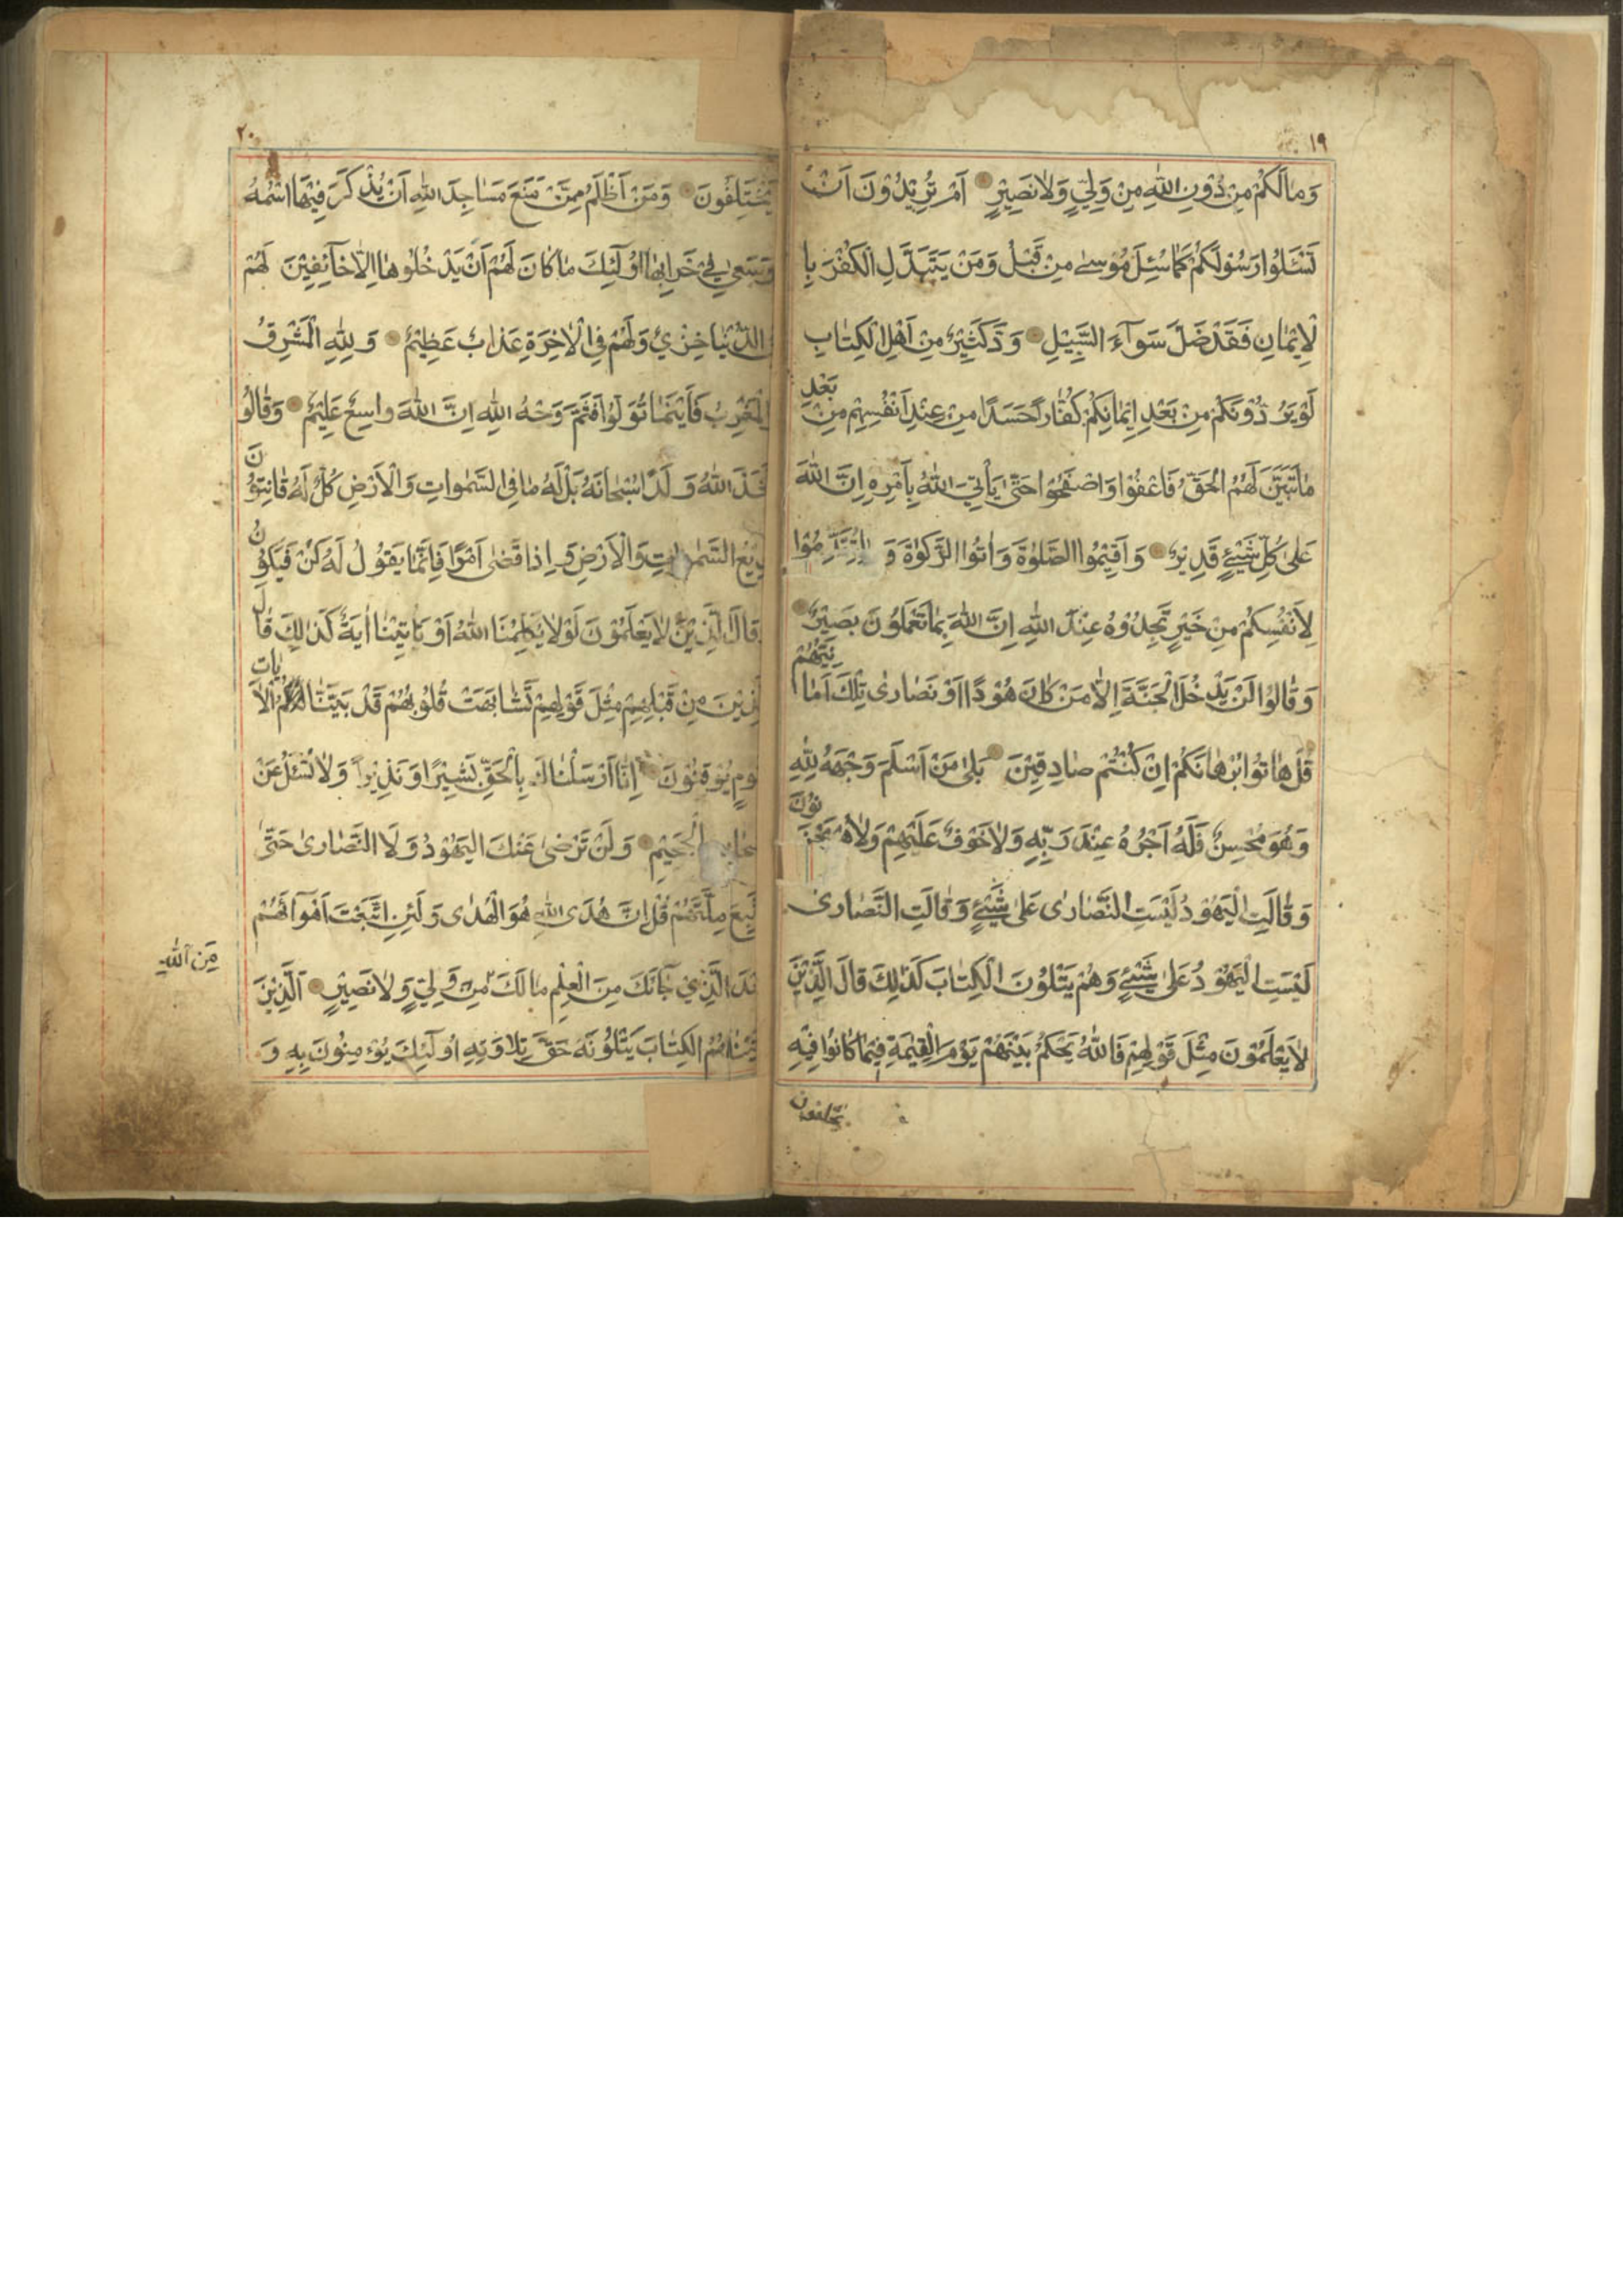 ١٩
وَمَا لَكُمْ مِنْ دُوْنِ اللّٰهِ مِنْ وَلِيٍّ وَلَا نَصِيْرٍ اَمْ تُرِيْدُوْنَ اَنْ
تَسْئَلُوا رَسُوْلَكُمْ كَمَا سُئِلَ مُوْسٰى مِنْ قَبْلُ وَمَنْ يَتَبَدَّلِ الْكُفْرَ بِا
لْاِيْمٰانِ فَقَدْ ضَلَّ سَوَآءَ السَّبِيْلِ وَدَّ كَثِيْرٌ مِنْ اَهْلِ الْكِتٰابِ
لَوْ يَرُدُّوْنَكُمْ مِنْ بَعْدِ اِيْمٰانِكُمْ كُفّٰاراً حَسَدًا مِنْ عِنْدِ اَنْفُسِهِمْ مِنْ بَعْدِ
مٰا تَبَيَّنَ لَهُمُ الْحَقُّ فَاعْفُوْا وَاصْفَحُوا حَتّٰى يَأْتِيَ اللّٰهُ بِاَمْرِهٖ اِنَّ اللّٰهَ
عَلٰى كُلِّ شَيْئٍ قَدِيْرٌ وَاَقِيْمُوا الصَّلٰوةَ وَاٰتُوا الزَّكٰوةَ وَمٰا تُقَدِّمُوْا
لِاَنْفُسِكُمْ مِنْ خَيْرٍ تَجِدُوْهُ عِنْدَ اللّٰهِ اِنَّ اللّٰهَ بِمٰا تَعْمَلُوْنَ بَصِيْرٌ
وَقٰالُوْا لَنْ يَدْخُلَ الْجَنَّةَ اِلّٰا مَنْ كٰانَ هُوْدًا اَوْ نَصٰارٰى تِلْكَ اَمٰانِيُّهُمْ
قُلْ هٰاتُوْا بُرْهٰانَكُمْ اِنْ كُنْتُمْ صٰادِقِيْنَ بَلٰى مَنْ اَسْلَمَ وَجْهَهُ لِلّٰهِ
وَهُوَ مُحْسِنٌ فَلَهُ اَجْرُهُ عِنْدَ رَبِّهٖ وَلٰا خَوْفٌ عَلَيْهِمْ وَلٰا هُمْ يَحْزَنُوْنَ
وَقٰالَتِ الْيَهُوْدُ لَيْسَتِ النَّصٰارٰى عَلٰى شَيْئٍ وَقٰالَتِ النَّصٰارٰى
لَيْسَتِ الْيَهُوْدُ عَلٰى شَيْئٍ وَهُمْ يَتْلُوْنَ الْكِتٰابَ كَذٰلِكَ قٰالَ الَّذِيْنَ
لٰا يَعْلَمُوْنَ مِثْلَ قَوْلِهِمْ فَاللّٰهُ يَحْكُمُ بَيْنَهُمْ يَوْمَ الْقِيٰمَةِ فِيْمٰا كٰانُوْا فِيْهِ
يختلفون
٢٠
يَخْتَلِفُوْنَ وَمَنْ اَظْلَمُ مِمَّنْ مَنَعَ مَسٰاجِدَ اللّٰهِ اَنْ يُذْكَرَ فِيْهَا اسْمُهُ
وَسَعٰى فِيْ خَرٰابِهٰا اُولٰٓئِكَ مٰا كٰانَ لَهُمْ اَنْ يَدْخُلُوْهٰا اِلّٰا خٰآئِفِيْنَ لَهُمْ
الدُّنْيٰا خِزْيٌ وَلَهُمْ فِي الْاٰخِرَةِ عَذٰابٌ عَظِيْمٌ وَلِلّٰهِ الْمَشْرِقُ
الْمَغْرِبُ فَاَيْنَمٰا تُوَلُّوْا فَثَمَّ وَجْهُ اللّٰهِ اِنَّ اللّٰهَ وٰاسِعٌ عَلِيْمٌ وَقٰالُوْا
تَّخَذَ اللّٰهُ وَلَدًا سُبْحٰانَهُ بَلْ لَهُ مٰا فِي السَّمٰوٰاتِ وَالْاَرْضِ كُلٌّ لَهُ قٰانِتُوْنَ
دِيْعُ السَّمٰوٰاتِ وَالْاَرْضِ وَاِذٰا قَضٰى اَمْرًا فَاِنَّمٰا يَقُوْلُ لَهُ كُنْ فَيَكُوْنُ
وَقٰالَ الَّذِيْنَ لٰا يَعْلَمُوْنَ لَوْلٰا يُكَلِّمُنَا اللّٰهُ اَوْ يٰاتِيْنٰا اٰيَةٌ كَذٰلِكَ قٰالَ
لَّذِيْنَ مِنْ قَبْلِهِمْ مِثْلَ قَوْلِهِمْ تَشٰابَهَتْ قُلُوْبُهُمْ قَدْ بَيَّنَّا الْاٰيٰاتِ
وْمٍ يُوْقِنُوْنَ اِنّٰا اَرْسَلْنٰاكَ بِالْحَقِّ بَشِيْرًا وَنَذِيْراً وَلٰا تُسْئَلُ عَنْ
صْحٰابِ الْجَحِيْمِ وَلَنْ تَرْضٰى عَنْكَ الْيَهُوْدُ وَلَا النَّصٰارٰى حَتّٰى
تَّبِعَ مِلَّتَهُمْ قُلْ اِنَّ هُدَى اللّٰهِ هُوَ الْهُدٰى وَلَئِنِ اتَّبَعْتَ اَهْوٰآئَهُمْ
عْدَ الَّذِيْ جٰآئَكَ مِنَ الْعِلْمِ مٰا لَكَ مِنَ اللّٰهِ مِنْ وَلِيٍّ وَلٰا نَصِيْرٍ اَلَّذِيْنَ
تَيْنٰاهُمُ الْكِتٰابَ يَتْلُوْنَهُ حَقَّ تِلٰاوَتِهٖ اُولٰٓئِكَ يُؤْمِنُوْنَ بِهٖ وَ